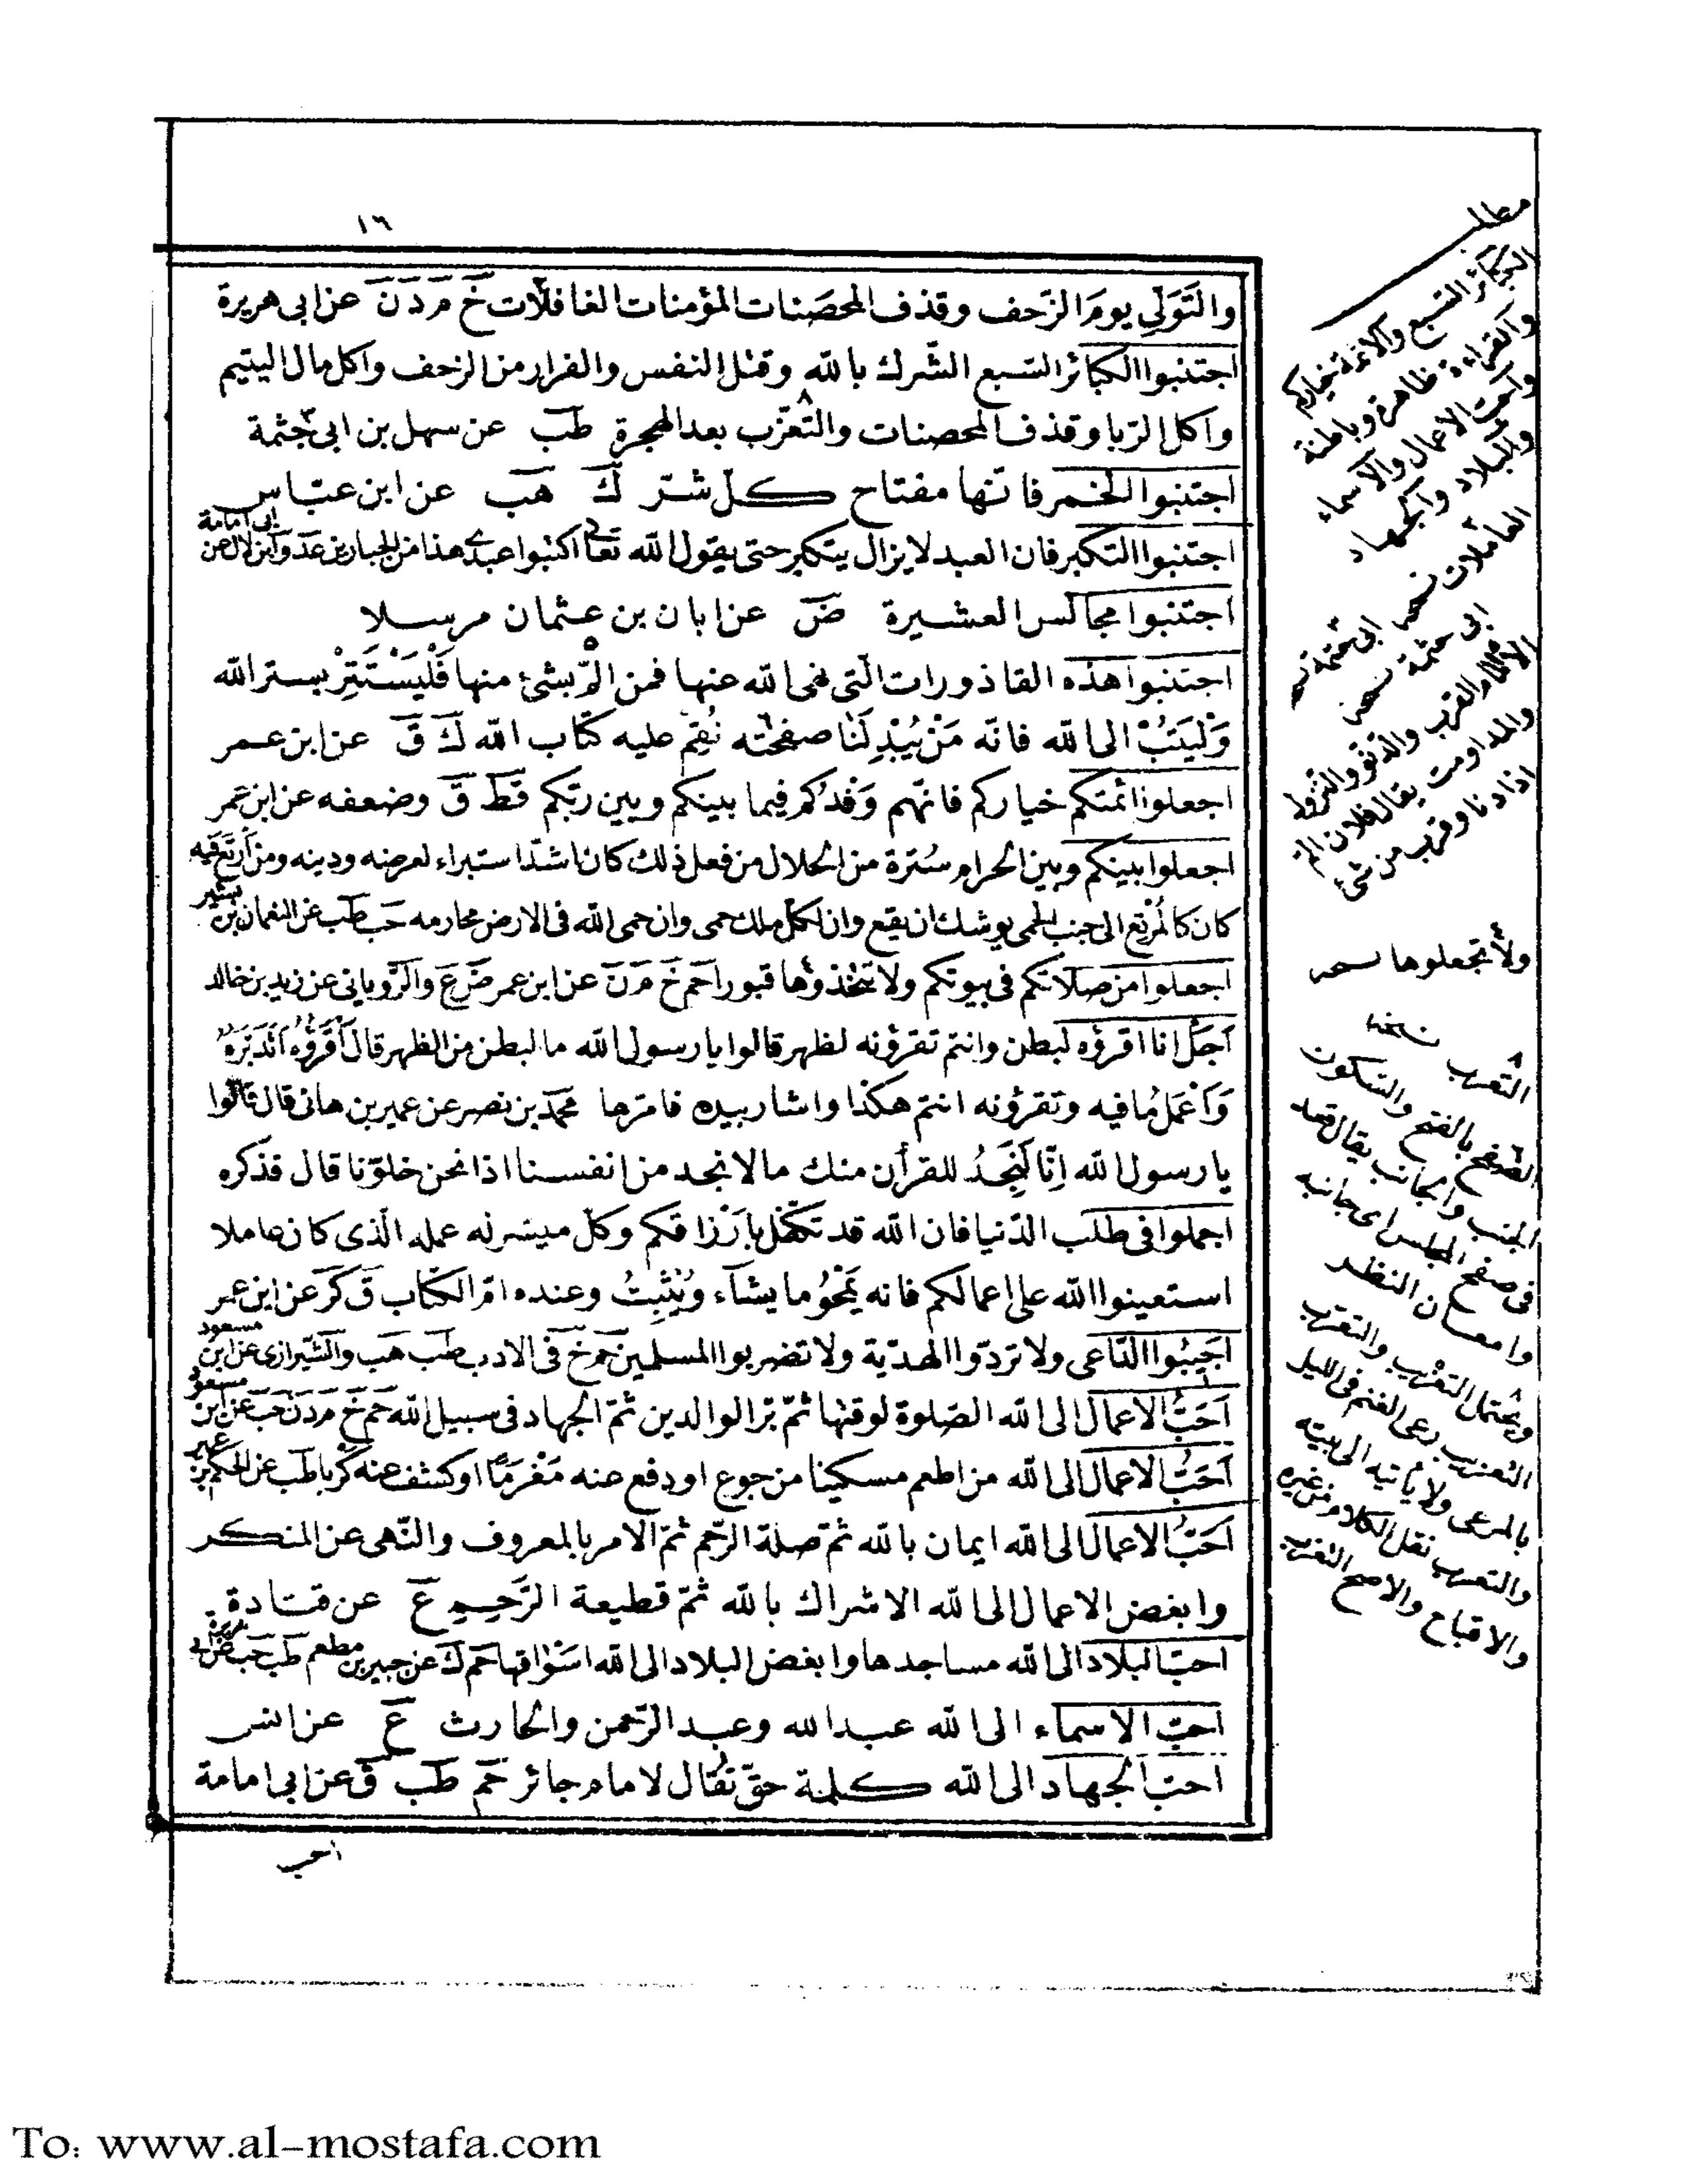 ١٦
والتَوَلّي يومَ الزّحف وقذف المحصَنات المؤمنات الغافلات خ م د ن عن ابى هريرة
اجتنبوا الكبائر السّبع الشّرك بالله وقتل النفس والفرار من الزحف واكل مال اليتيم
واكل الرّبا وقذف المحصنات والتّعرّب بعد الهجرة طب عن سهل بن ابى حثمة
اجتنبوا الخمر فانّها مفتاح كل شرّ ك هب عن ابن عبّاس
اجتنبوا التكبر فان العبد لا يزال يتكبر حتى يقول الله تعالى اكتبوا عبدى هذا من الجبارين عد وابن لال عن ابى امامة
اجتنبوا مجالس العشيرة ض عن ابان بن عثمان مرسلا
اجتنبوا هذه القاذورات الّتى نهى الله عنها فمن المّ بشئ منها فَلْيَسْتَتِرْ بستر الله
وَلْيَتُبْ الى الله فانّه مَنْ يُبْدِ لَنَا صفحته نُقِم عليه كتاب الله ك ق عن ابن عمر
اجعلوا ائمتكم خياركم فانّهم وَفْدُكم فيما بينكم وبين ربّكم قط ق وضعفه عن ابن عمر
اجعلوا بينكم وبين الحرام سُترة من الحلال من فعل ذلك كان اشدّ استبراء لعرضه ودينه ومن ارتع فيه
كان كالمُرْتِع الى جنب الحمى يوشك ان يقع وان لكل ملك حمى وان حمى الله فى الارض محارمه حب طب عن النعمان بن بشير
اجعلوا من صلاتكم فى بيوتكم ولا تتّخذوها قبورا حم خ م د ن عن ابن عمر ض ع والرّويانى عن زيد بن خالد
اَجَل انا اقرؤه لبطن وانتم تقرؤنه لظهر قالوا يا رسول الله ما البطن من الظهر قال اَقْرَؤُه اَتَدَبَّرهُ
وَاَعْمَلُ ما فيه وتقرؤنه انتم هكذا واشار بيده فامرّها محمّد بن نصر عن عمير بن هانى قال قالوا
يا رسول الله اِنّا لَنَجِدُ للقرأن منك ما لا نجد من انفسنا اذا نحن خلوّنا قال فذكره
اجملوا فى طلب الدّنيا فان الله قد تكفّل بارْزاقكم وكلّ ميسّر له عمله الّذى كان عاملا
استعينوا الله على اعمالكم فانه يَمْحُو ما يشآء ويُثْبِتُ وعنده امّ الكتاب ق كر عن ابن عمر
اَجيبُوا الدّاعى ولا تردّوا الهديّة ولا تضربوا المسلمين حم خ فى الادب طب هب والشّيرازى عن ابن مسعود
اَحَبُّ الاعمال الى الله الصّلوة لوقتها ثمّ برّ الوالدين ثمّ الجهاد فى سبيل الله حم خ م د ن حب عن ابن مسعود
اَحَبُّ الاعمال الى الله من اطعم مسكينا من جوع او دفع عنه مَغْرَمًا او كشف عنه كربا طب عن الحكم بن عمير
اَحَبُّ الاعمال الى الله ايمان بالله ثمّ صلة الرّحم ثمّ الامر بالمعروف والنّهى عن المنكر
وابغض الاعمال الى الله الاشراك بالله ثمّ قطيعة الرَّحِم ع عن قتادة
احبّ البلاد الى الله مساجدها وابغض البلاد الى الله اسْواقها حم ك عن جبير بن مطعم طب حب عن ابى هريرة
احبّ الاسماء الى الله عبد الله وعبد الرّحمن والحارث ع عن انس
احبّ الجهاد الى الله كلمة حقّ تُقال لامام جائر حم طب ق عن ابى امامة
احب
مطلب
الكبائر السّبع والائمة خياركم
والقراءة ظاهرة وباطنة
واحب الاعمال والاسماء
والبلاد والجهاد
الغافلات نسخه
ابى حثمة نسخه
والمداومت يقال فلان الم
اذا دنا وقرب من شئ
ولا تجعلوها نسخه
التّعرب نسخه
الصّفح بالفتح والسّكون
الجنب والجانب يقال قعد
فى صفح المجلس اى جانبه
وامعان النظر
ويحتمل التعزب والتغرب
التعزب رعى الغنم فى الليل
بالمرعى ولا يأتيه الى بيته
والتعرب نقل الكلام من غيره
والاقباح والاصح التغرب
To: www.al-mostafa.com